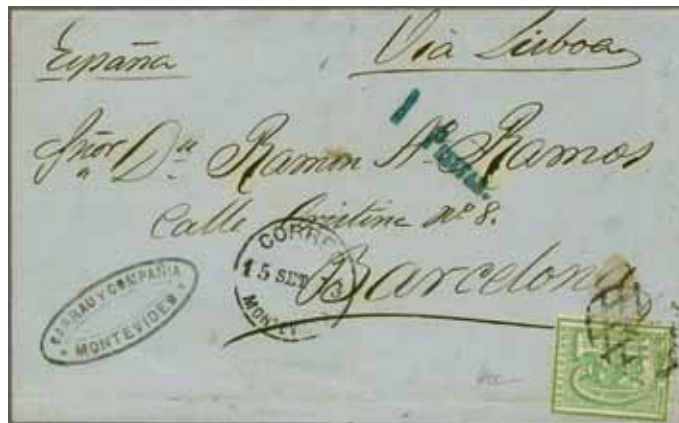 España Via Lisboa
Señor Dn Ramon Ramos
Calle Cristina nº 8.
Barcelona
CORRE
15 SET 73
MONTEV
Y COMPAÑIA
MONTEVIDEO
1